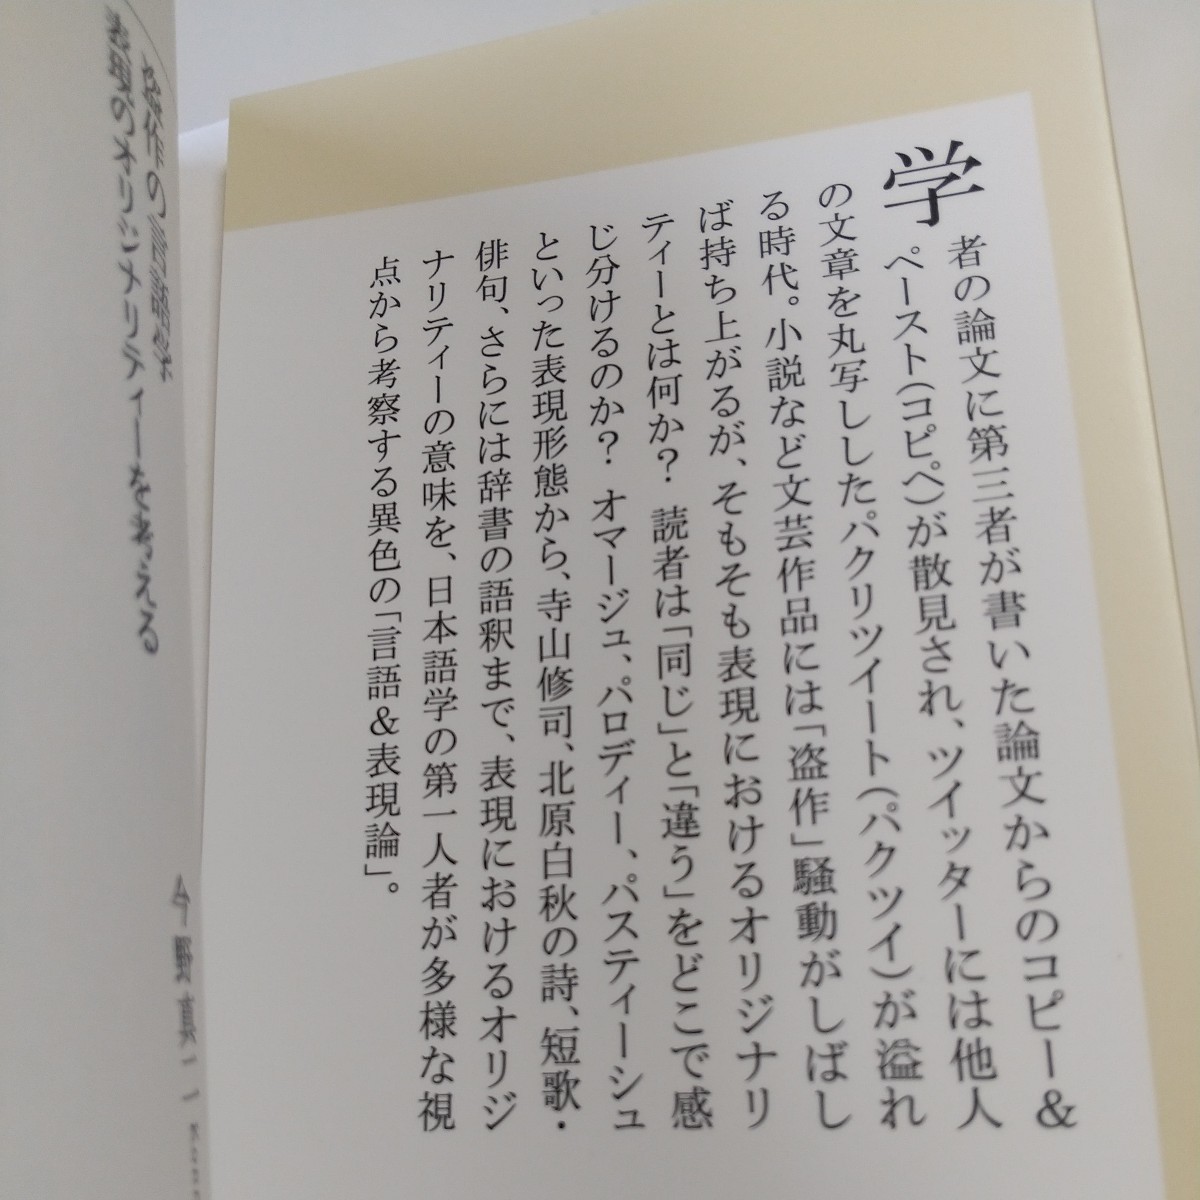 学者の論文に第三者が書いた論文からのコピー＆
ペースト（コピペ）が散見され、ツイッターには他人
の文章を丸写ししたパクリツイート（パクツイ）が溢れ
る時代。小説など文芸作品には「盗作」騒動がしばし
ば持ち上がるが、そもそも表現におけるオリジナリ
ティーとは何か？ 読者は「同じ」と「違う」をどこで感
じ分けるのか？ オマージュ、パロディー、パスティーシュ
といった表現形態から、寺山修司、北原白秋の詩、短歌・
俳句、さらには辞書の語釈まで、表現におけるオリジ
ナリティーの意味を、日本語学の第一人者が多様な視
点から考察する異色の「言語＆表現論」。
盗作の言語学
表現のオリジナリティーを考える
今野真二